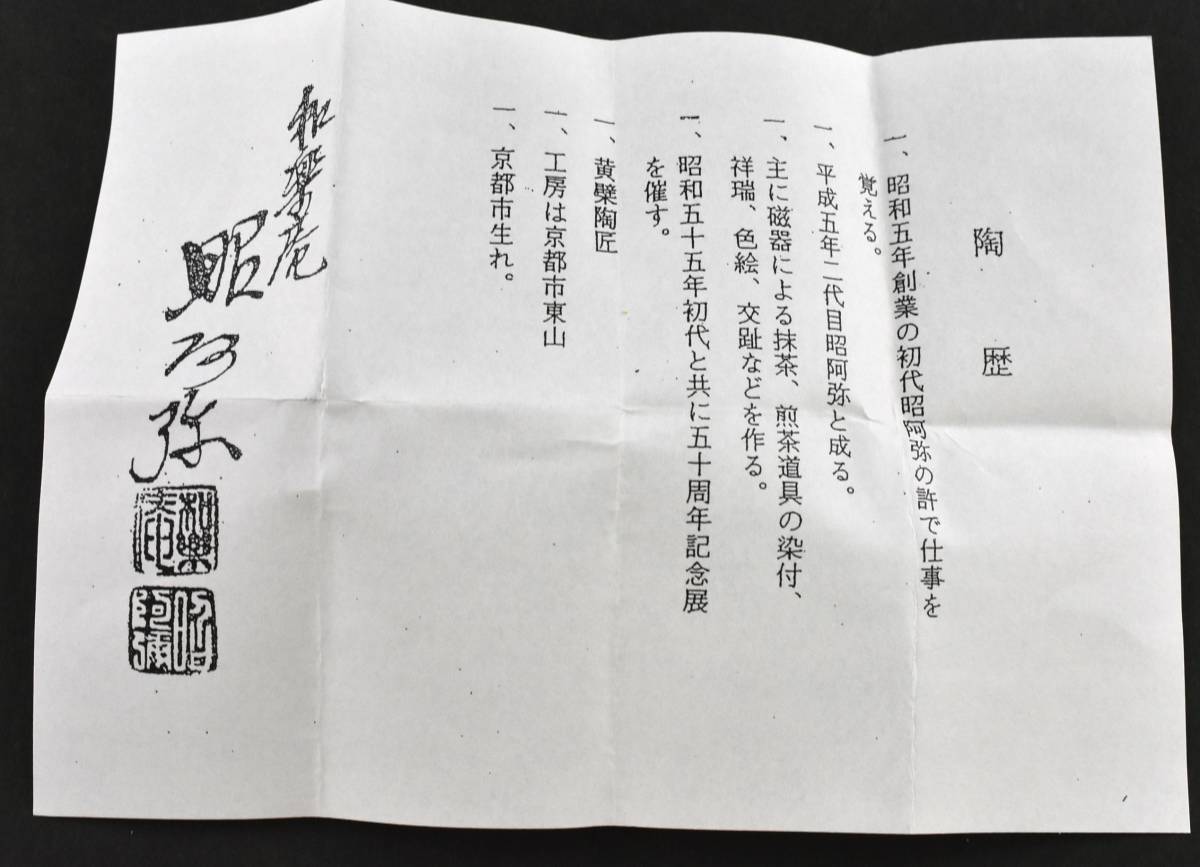 陶歴
一、昭和五年創業の初代昭阿弥の許で仕事を
覚える。
一、平成五年二代目昭阿弥と成る。
一、主に磁器による抹茶、煎茶道具の染付、
祥瑞、色絵、交趾などを作る。
一、昭和五十五年初代と共に五十周年記念展
を催す。
一、黄檗陶匠
一、工房は京都市東山
一、京都市生れ。
和楽庵
昭阿弥
和樂
昭阿彌